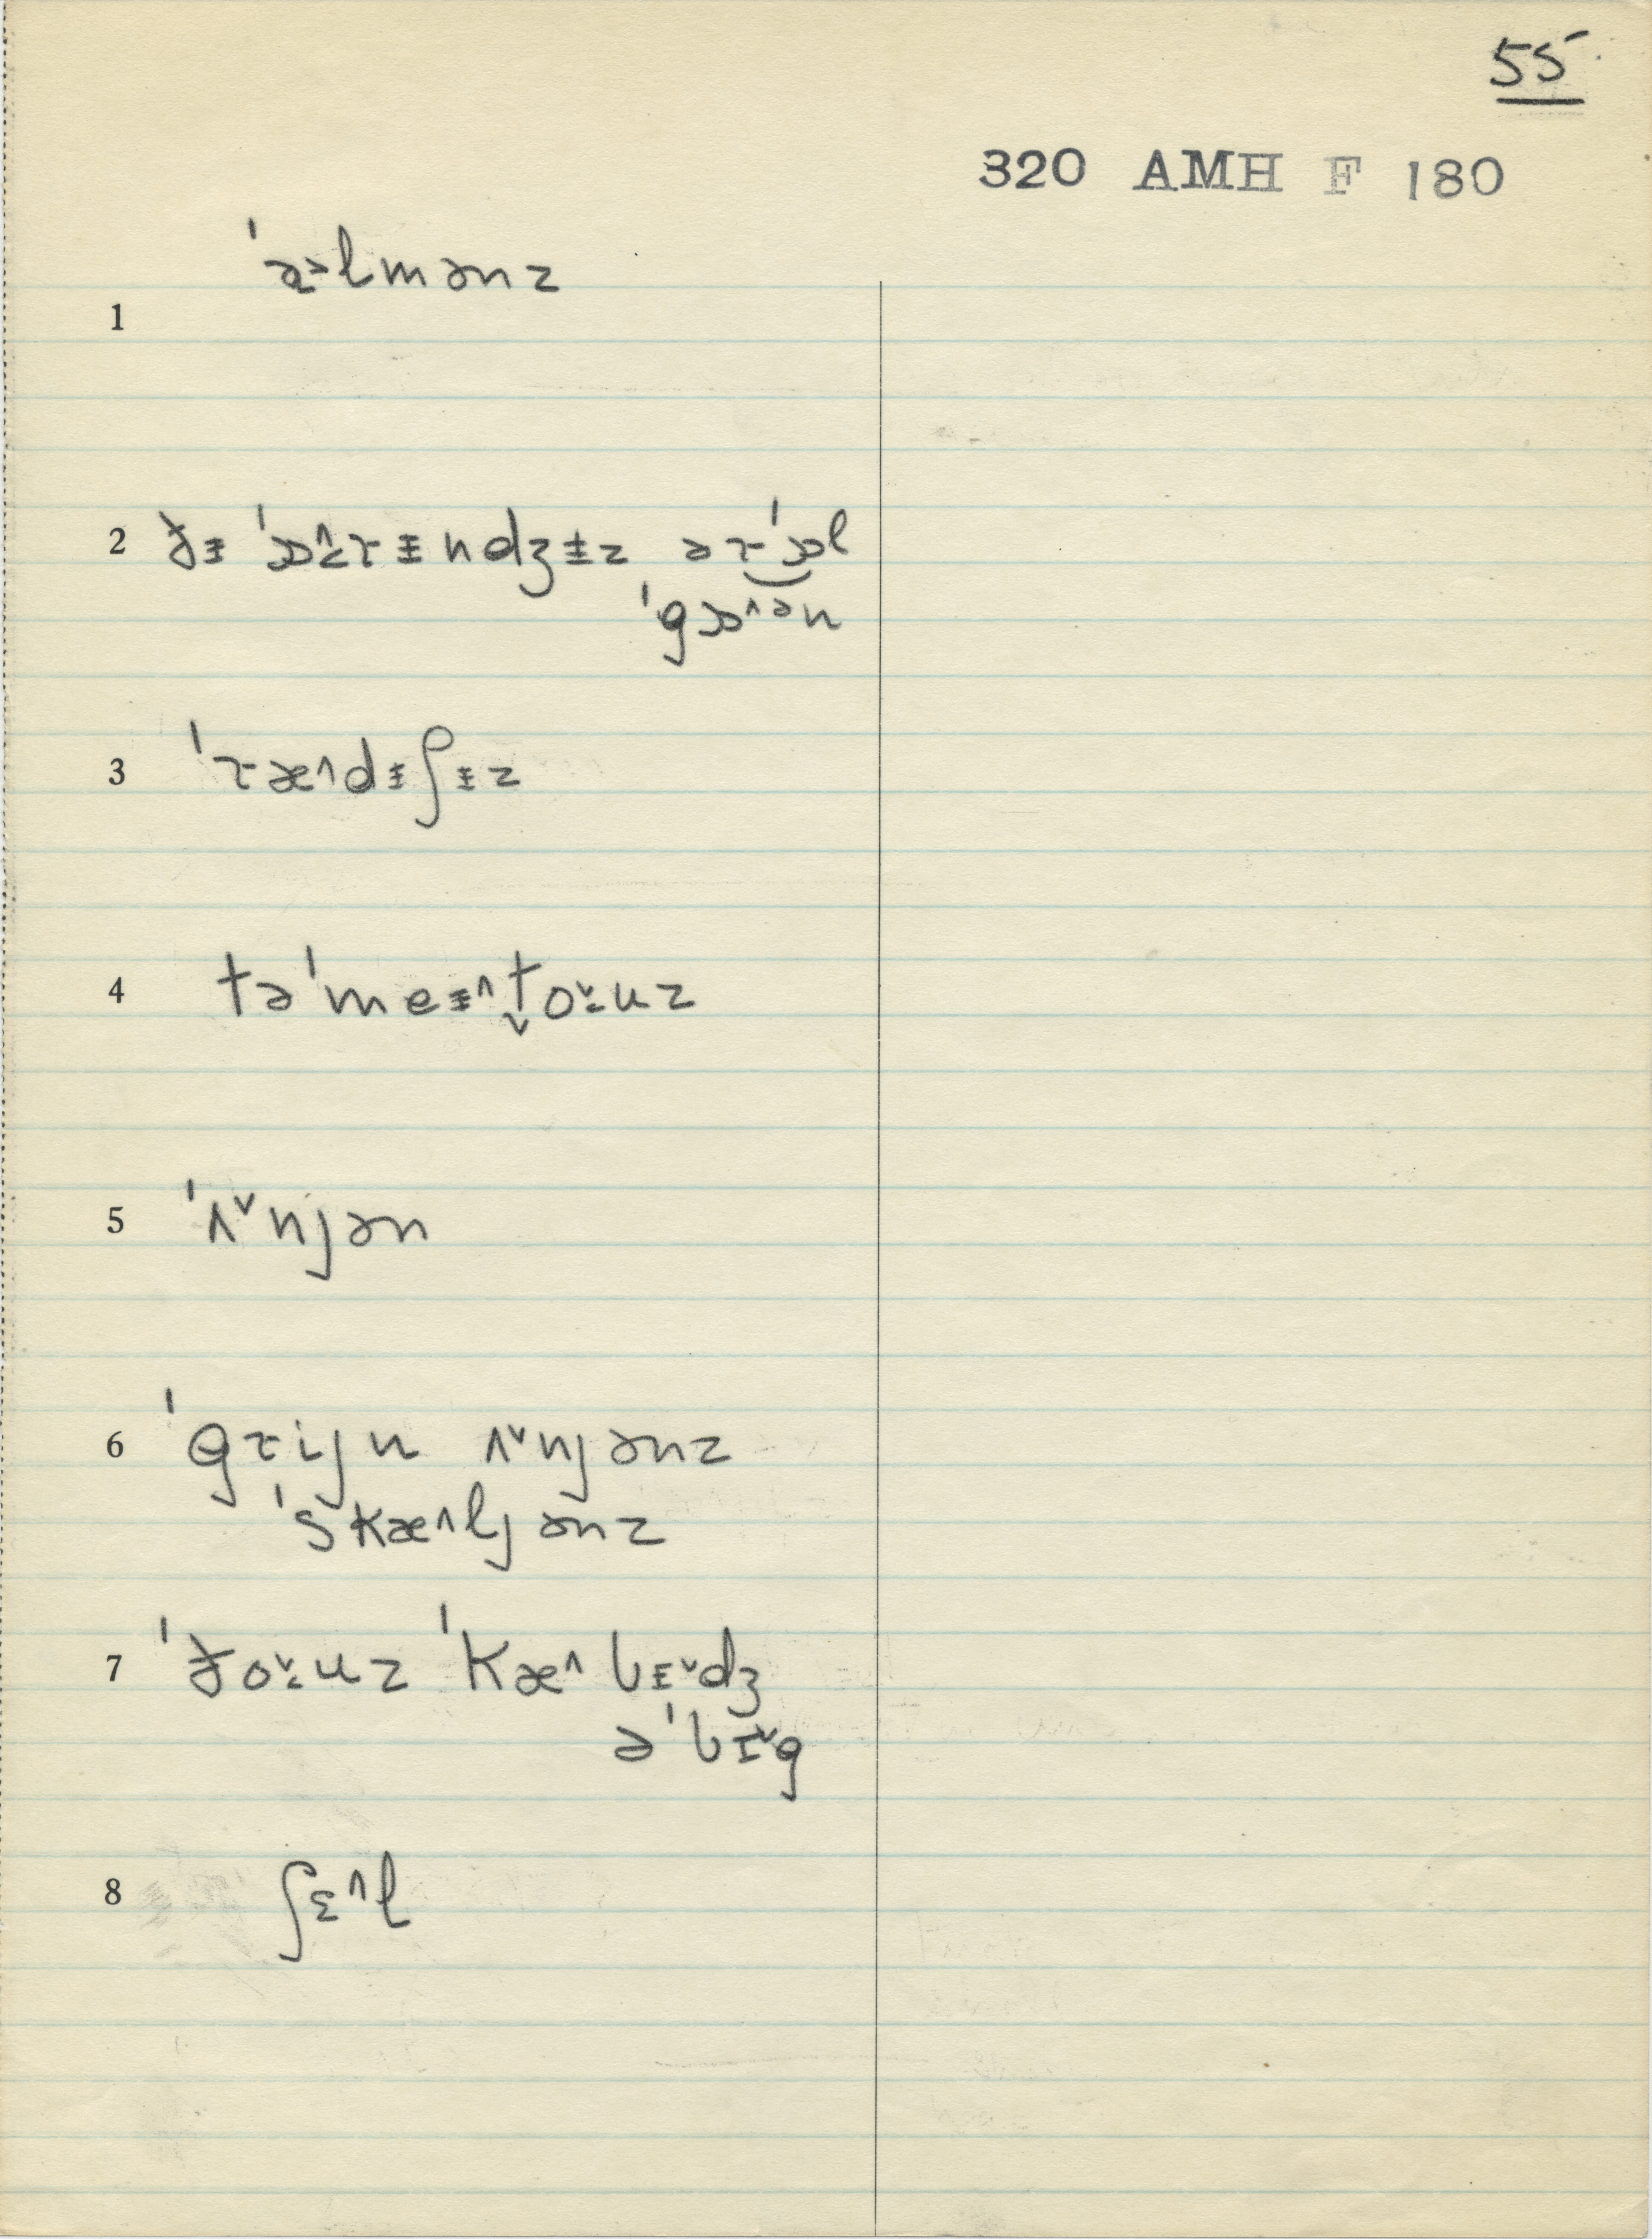 55
320 AMH F 180
1 ˈɑ˃lmənz
2 ðɨ ˈɒ^rɨndʒɨz ərˈɒl
ˈgɒ^ən
3 ˈræ^dɨʃɨz
4 təˈmeɨ^t̬oˇʊz
5 ˈʌˇnjən
6 ˈgrijn ʌˇnjənz
ˈskæ^ljənz
7 ˈðoˇʊz ˈkæ^bɪˇdʒ
əˈbɪˇg
8 ʃɛ^l